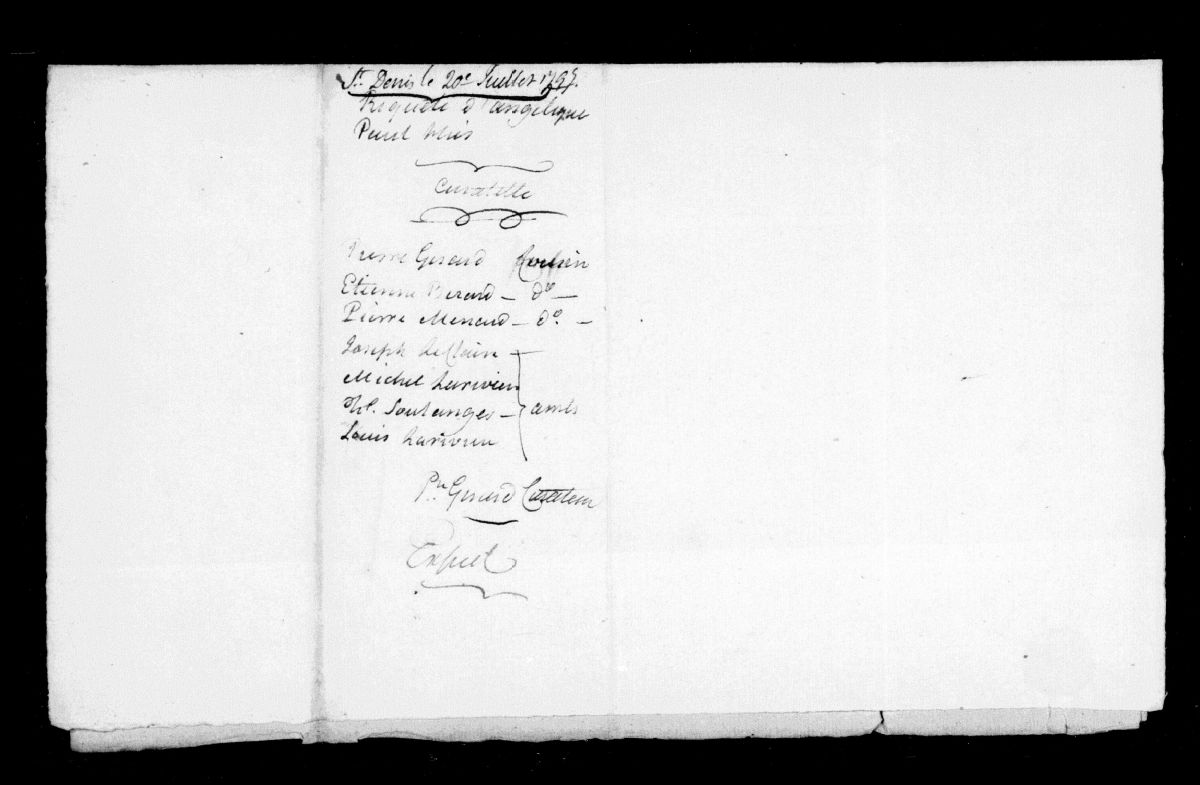 St. Denis le 20e Juillet 1797.
Requete d'angelique
Paul hus
Curatelle
Pierre Gerard Cousin
Etienne Berard — do —
Pierre Menard — do. —
Joseph LeClaire —
Michel Lariviere
Soulanges — amis
Louis Lariviere
Pre Gerard Curateur
Exped